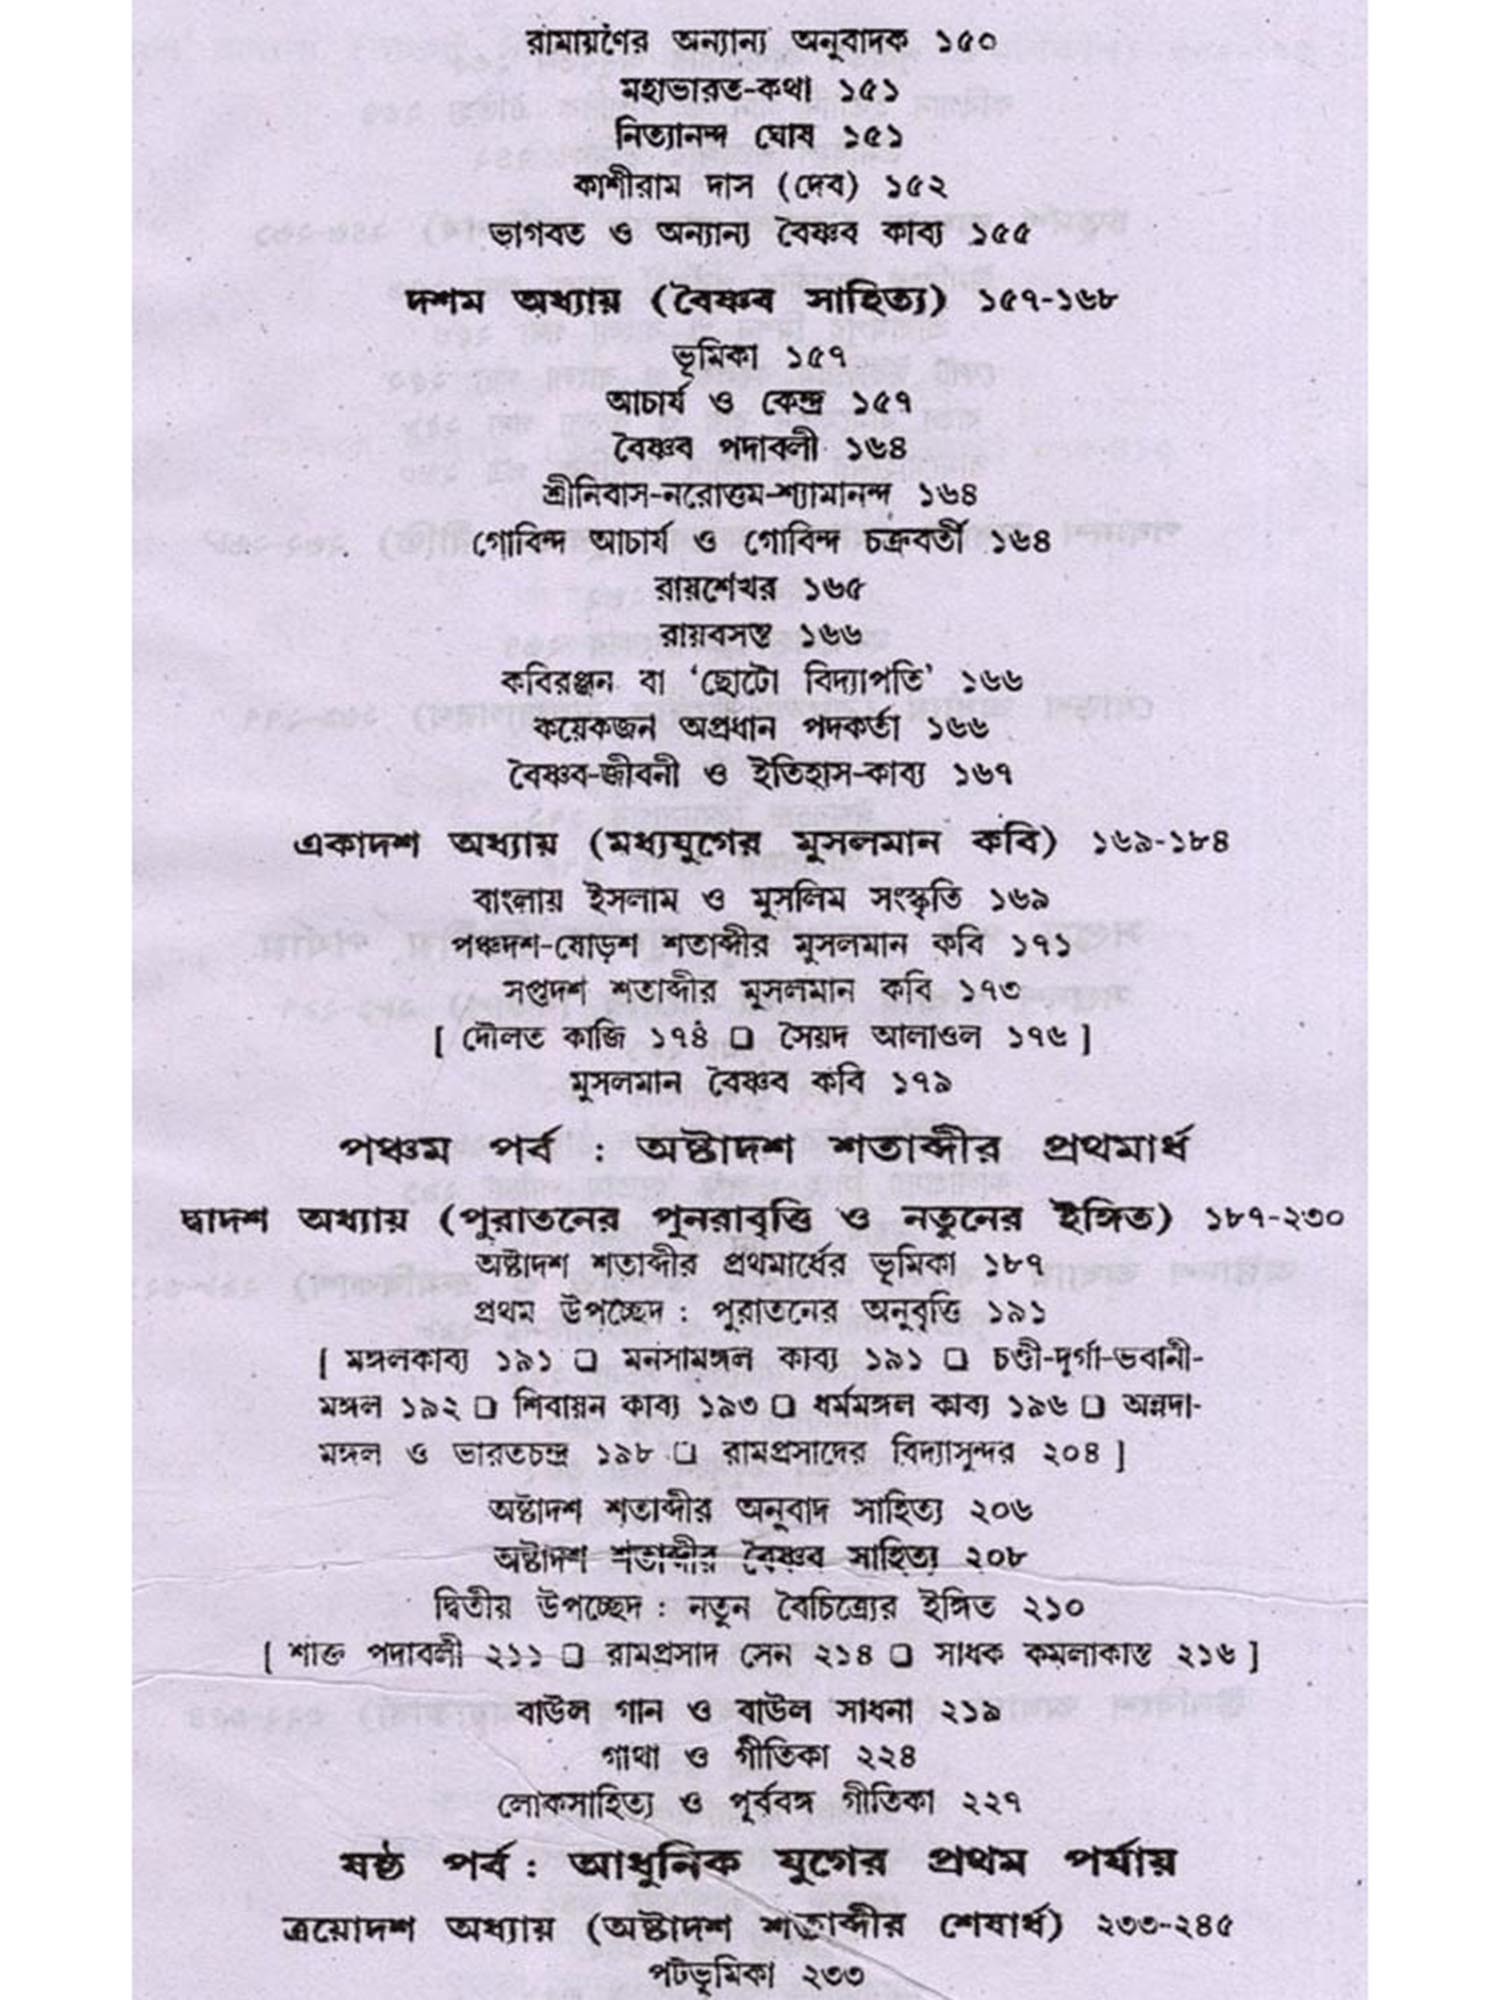 রামায়ণের অন্যান্য অনুবাদক ১৫০
মহাভারত-কথা ১৫১
নিত্যানন্দ ঘোষ ১৫১
কাশীরাম দাস (দেব) ১৫২
ভাগবত ও অন্যান্য বৈষ্ণব কাব্য ১৫৫
দশম অধ্যায় (বৈষ্ণব সাহিত্য) ১৫৭-১৬৮
ভূমিকা ১৫৭
আচার্য ও কেন্দ্র ১৫৭
বৈষ্ণব পদাবলী ১৬৪
শ্রীনিবাস-নরোত্তম-শ্যামানন্দ ১৬৪
গোবিন্দ আচার্য ও গোবিন্দ চক্রবর্তী ১৬৪
রায়শেখর ১৬৫
রায়বসন্ত ১৬৬
কবিরঞ্জন বা ‘ছোটো বিদ্যাপতি’ ১৬৬
কয়েকজন অপ্রধান পদকর্তা ১৬৬
বৈষ্ণব-জীবনী ও ইতিহাস-কাব্য ১৬৭
একাদশ অধ্যায় (মধ্যযুগের মুসলমান কবি) ১৬৯-১৮৪
বাংলায় ইসলাম ও মুসলিম সংস্কৃতি ১৬৯
পঞ্চদশ-ষোড়শ শতাব্দীর মুসলমান কবি ১৭১
সপ্তদশ শতাব্দীর মুসলমান কবি ১৭৩
[ দৌলত কাজি ১৭৪ ❏ সৈয়দ আলাওল ১৭৬ ]
মুসলমান বৈষ্ণব কবি ১৭৯
পঞ্চম পর্ব : অষ্টাদশ শতাব্দীর প্রথমার্ধ
দ্বাদশ অধ্যায় (পুরাতনের পুনরাবৃত্তি ও নতুনের ইঙ্গিত) ১৮৭-২৩০
অষ্টাদশ শতাব্দীর প্রথমার্ধের ভূমিকা ১৮৭
প্রথম উপচ্ছেদ : পুরাতনের অনুবৃত্তি ১৯১
[ মঙ্গলকাব্য ১৯১ ❏ মনসামঙ্গল কাব্য ১৯১ ❏ চণ্ডী-দুর্গা-ভবানী-
মঙ্গল ১৯২ ❏ শিবায়ন কাব্য ১৯৩ ❏ ধর্মমঙ্গল কাব্য ১৯৬ ❏ অন্নদা-
মঙ্গল ও ভারতচন্দ্র ১৯৮ ❏ রামপ্রসাদের বিদ্যাসুন্দর ২০৪ ]
অষ্টাদশ শতাব্দীর অনুবাদ সাহিত্য ২০৬
অষ্টাদশ শতাব্দীর বৈষ্ণব সাহিত্য ২০৮
দ্বিতীয় উপচ্ছেদ : নতুন বৈচিত্র্যের ইঙ্গিত ২১০
[ শাক্ত পদাবলী ২১১ ❏ রামপ্রসাদ সেন ২১৪ ❏ সাধক কমলাকান্ত ২১৬ ]
বাউল গান ও বাউল সাধনা ২১৯
গাথা ও গীতিকা ২২৪
লোকসাহিত্য ও পূর্ববঙ্গ গীতিকা ২২৭
ষষ্ঠ পর্ব : আধুনিক যুগের প্রথম পর্যায়
ত্রয়োদশ অধ্যায় (অষ্টাদশ শতাব্দীর শেষার্ধ) ২৩৩-২৪৫
পটভূমিকা ২৩৩